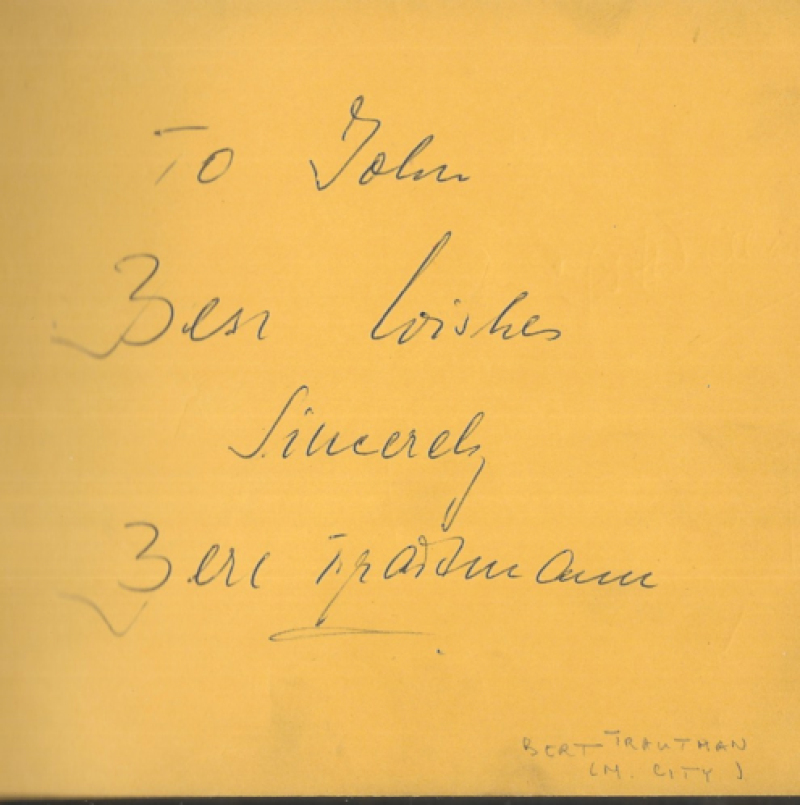 To John
Best Wishes
Sincerely
Bert Trautmann
BERT TRAUTMAN
(M. CITY)